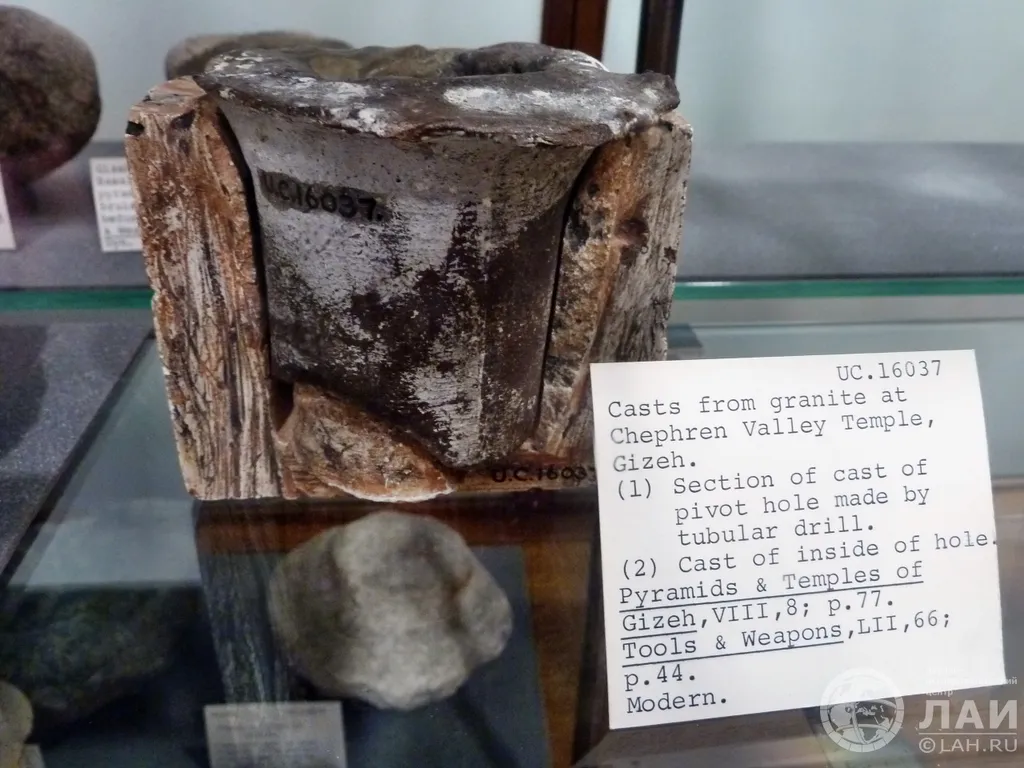 U.C.16037.
U.C.16037
UC.16037
Casts from granite at
Chephren Valley Temple,
Gizeh.
(1) Section of cast of
pivot hole made by
tubular drill.
(2) Cast of inside of hole.
Pyramids & Temples of
Gizeh,VIII,8; p.77.
Tools & Weapons,LII,66;
p.44.
Modern.
ЛАИ
©LAH.RU